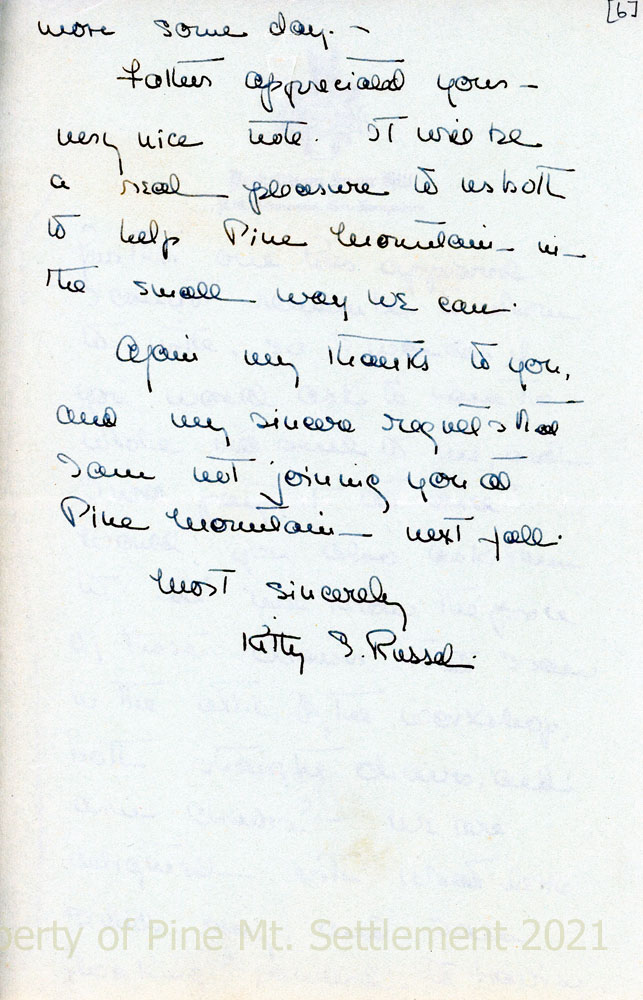 [6]
more some day. -
Father appreciated your -
very nice note. It will be
a real pleasure to us both
to help Pine Mountain - in -
the small way we can.
Again my thanks to you,
and my sincere regrets that
I am not joining you at
Pine Mountain - next fall.
Most sincerely
Kitty S. Russel.
perty of Pine Mt. Settlement 2021